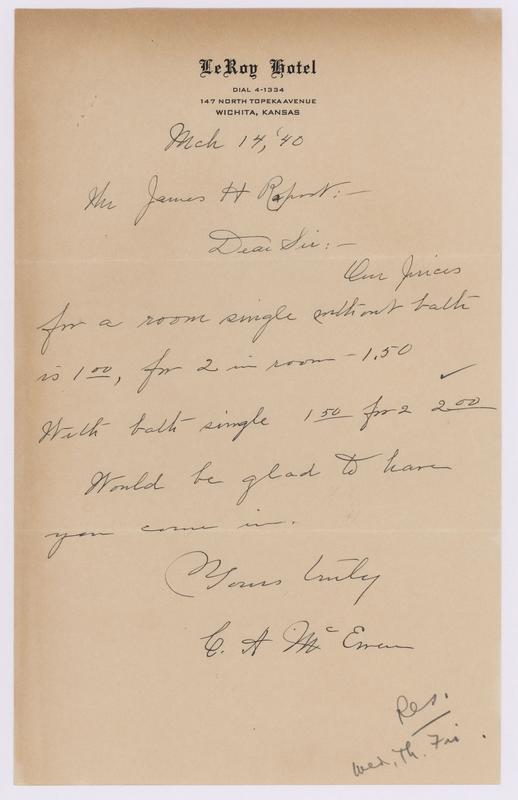 LeRoy Hotel
DIAL 4-1334
147 NORTH TOPEKA AVENUE
WICHITA, KANSAS
Mch 14, '40
Mr James H Raport:-
Dear Sir:-
Our prices
for a room single without bath
is 1 00, for 2 in room - 1.50
With bath single 1 50 for 2 2 00
Would be glad to have
you come in.
Yours truly
C. A McEwen
Res.
Wed, Th. Fri.